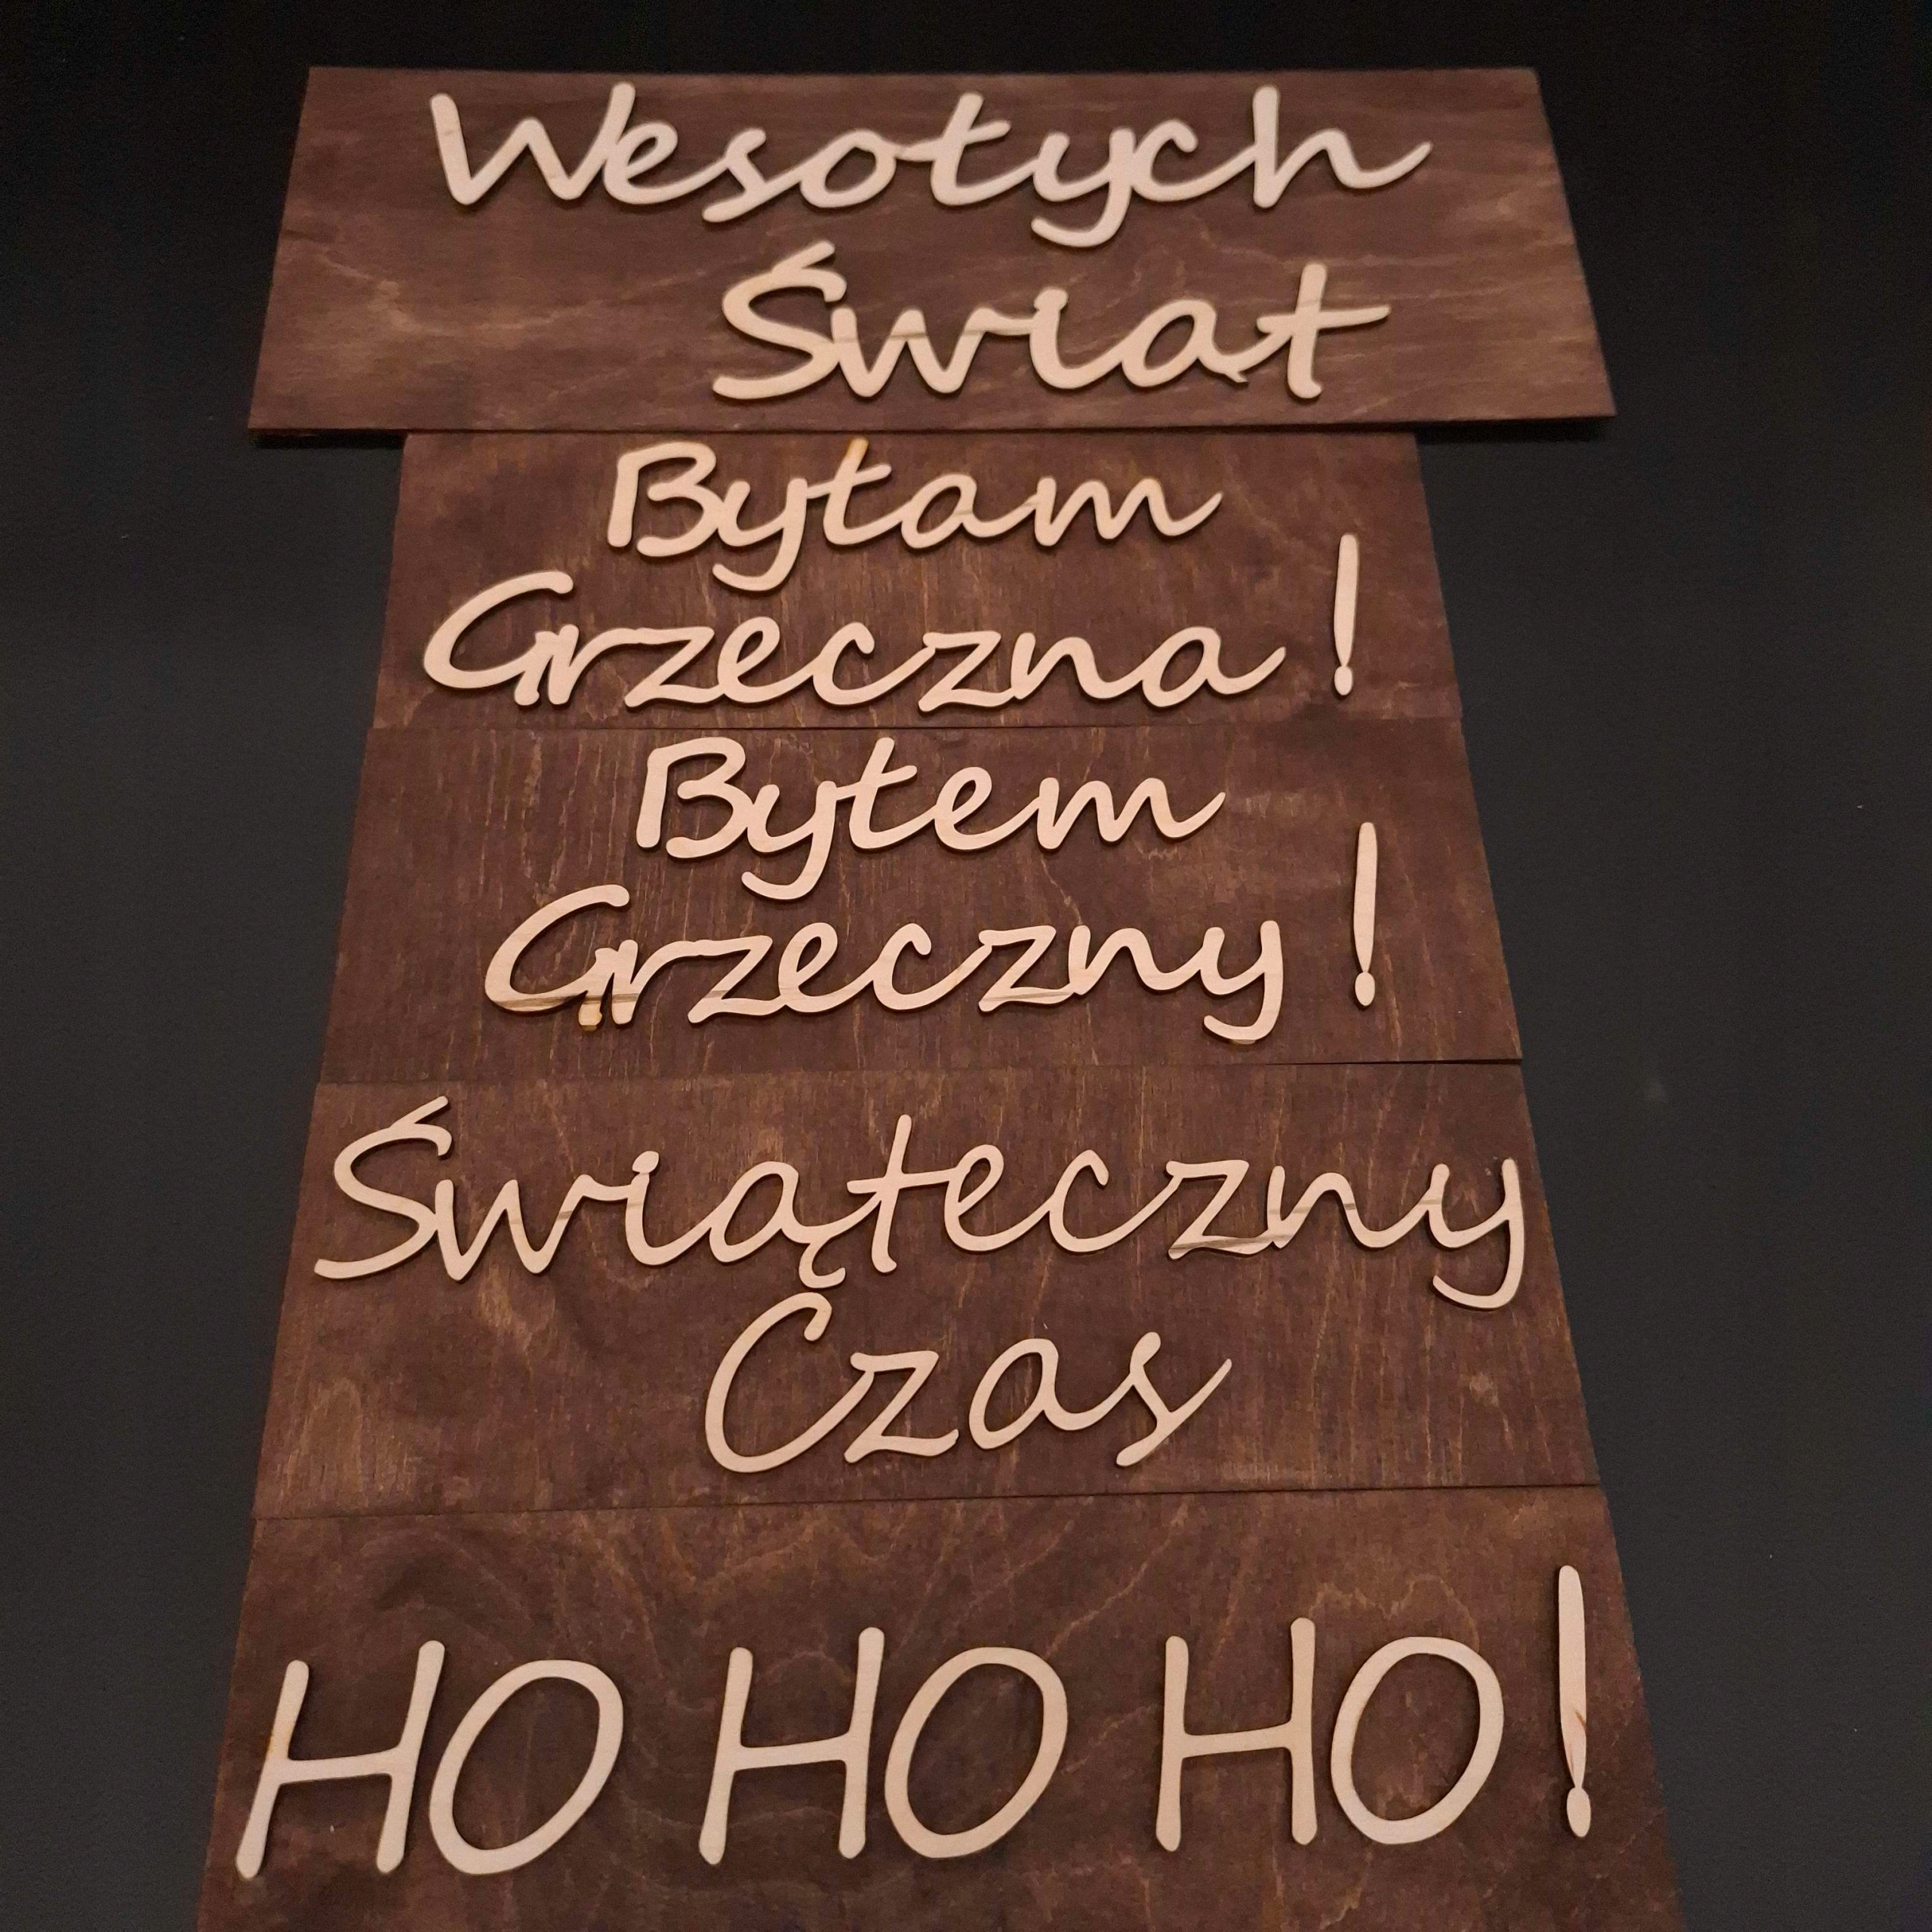 Wesołych
Świąt
Byłam
Grzeczna!
Byłem
Grzeczny!
Świąteczny
Czas
HO HO HO!